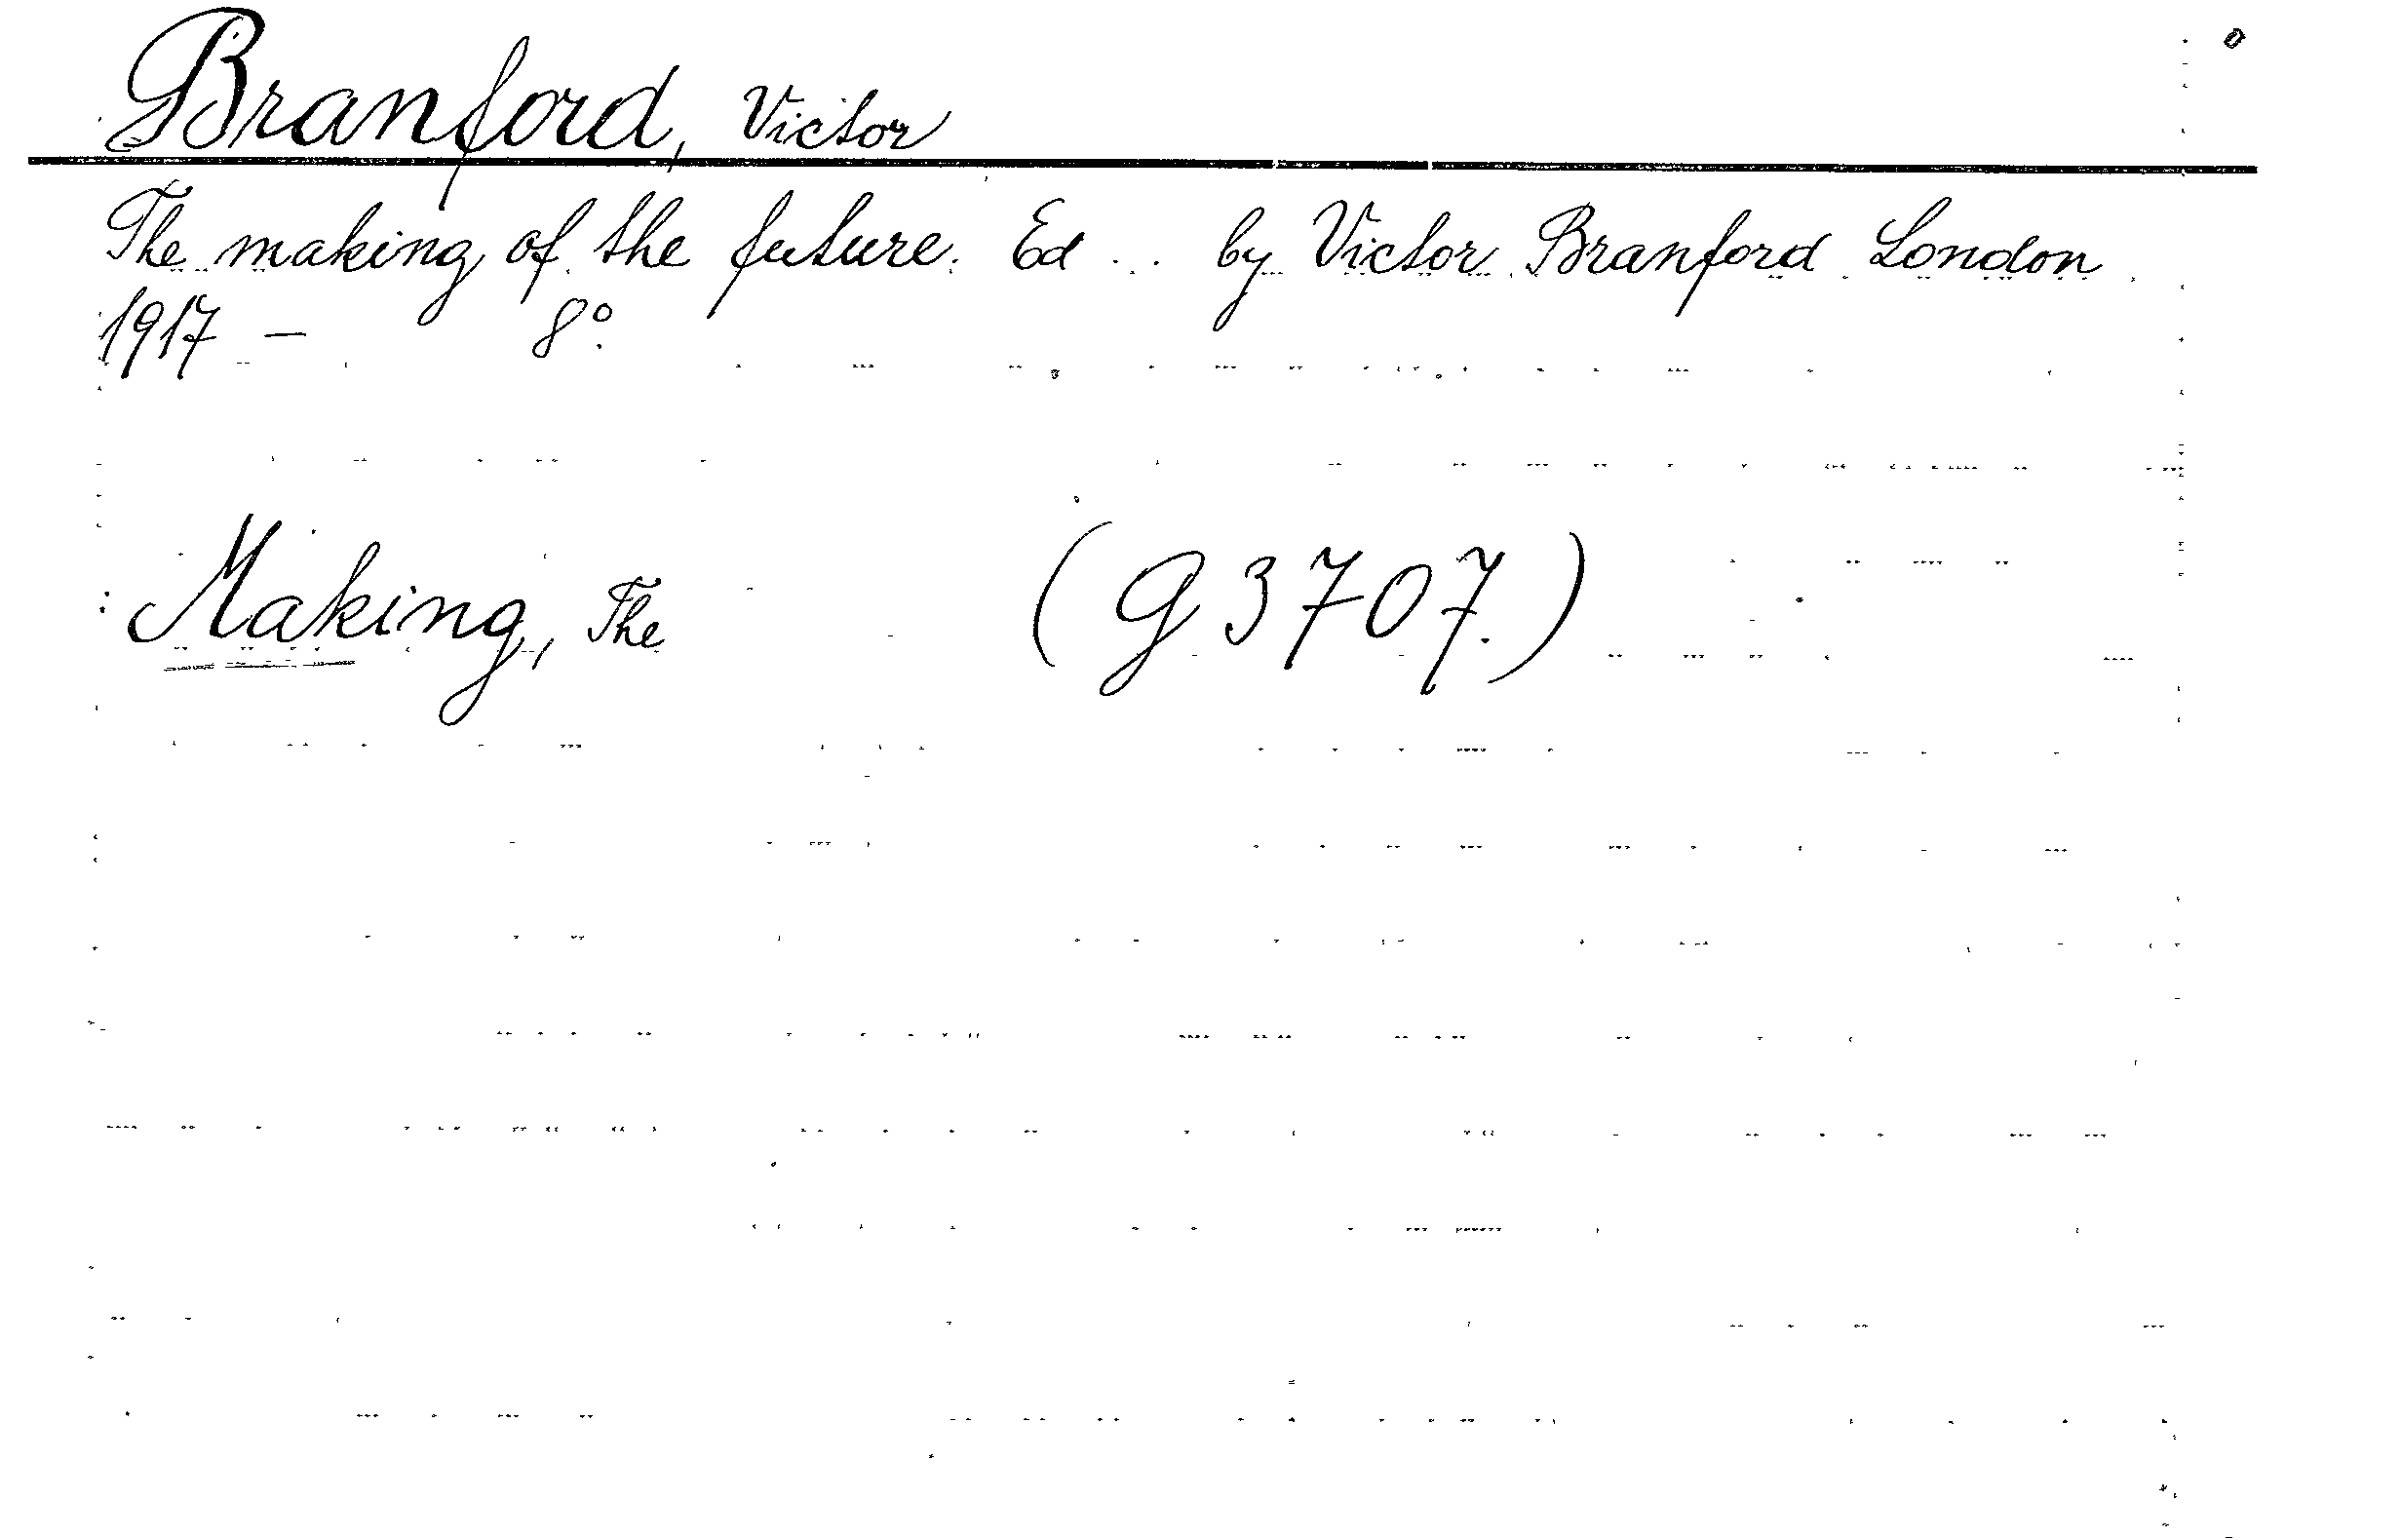 Branford, Victor
The making of the future. Ed . . by Victor Branford. London
1917 - 8°.
Making, The (G 3707.)